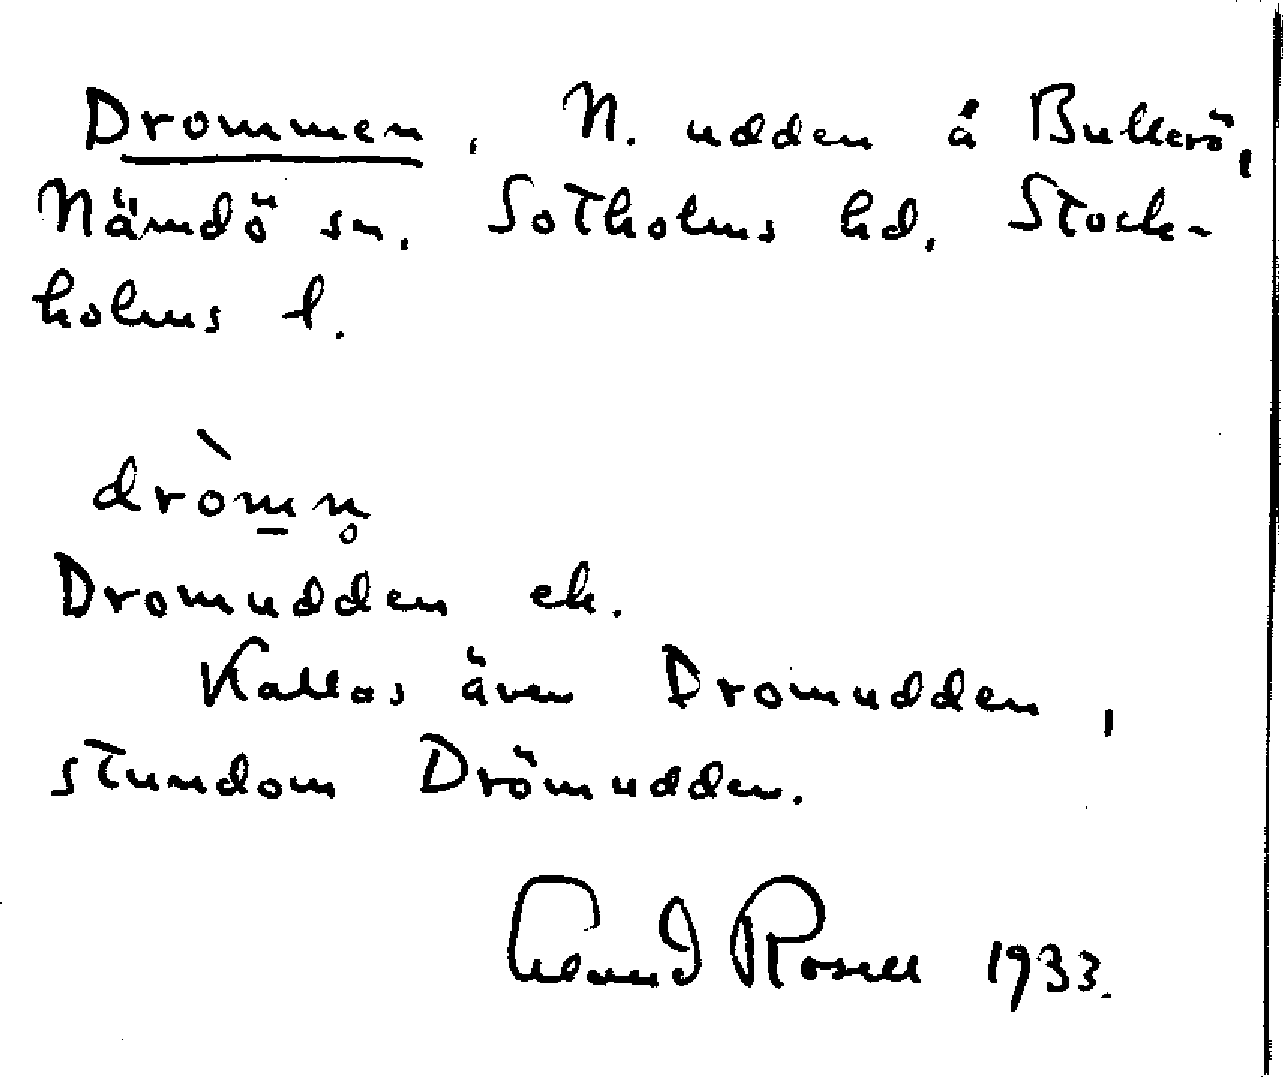 Drommen, N. udden å Bullerö,
Nämdö sn. Sotholms hd. Stock-
holms l.
dròm̲n̥
Dromudden ek.
Kallas även Dromudden,
stundom Drömudden.
Erland Rosell 1933.